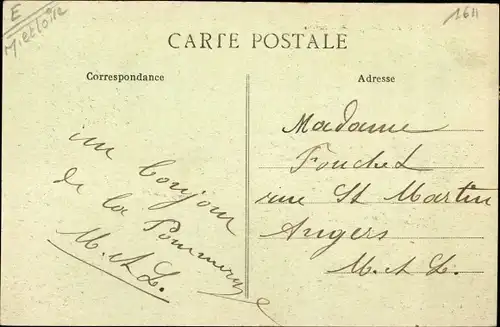 E
M. et Loire
1611
CARTE POSTALE
Correspondance
un bonjour
de la Pommeraye
M. & L.
Adresse
Madame
Fouchet
rue St Martin
Angers
M. & L.